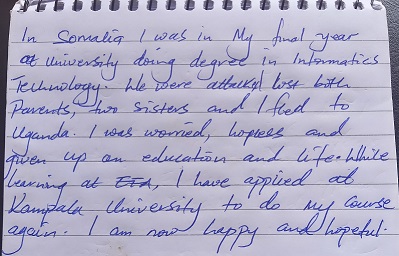 In Somalia I was in My final year
at University doing degree in Informatics
Technology. We were attacked lost both
Parents, two sisters and I fled to
Uganda. I was worried, hopless and
given up on education and life. While
learning at, I have applied at
Kampala University to do my course
again. I am now happy and hopeful.